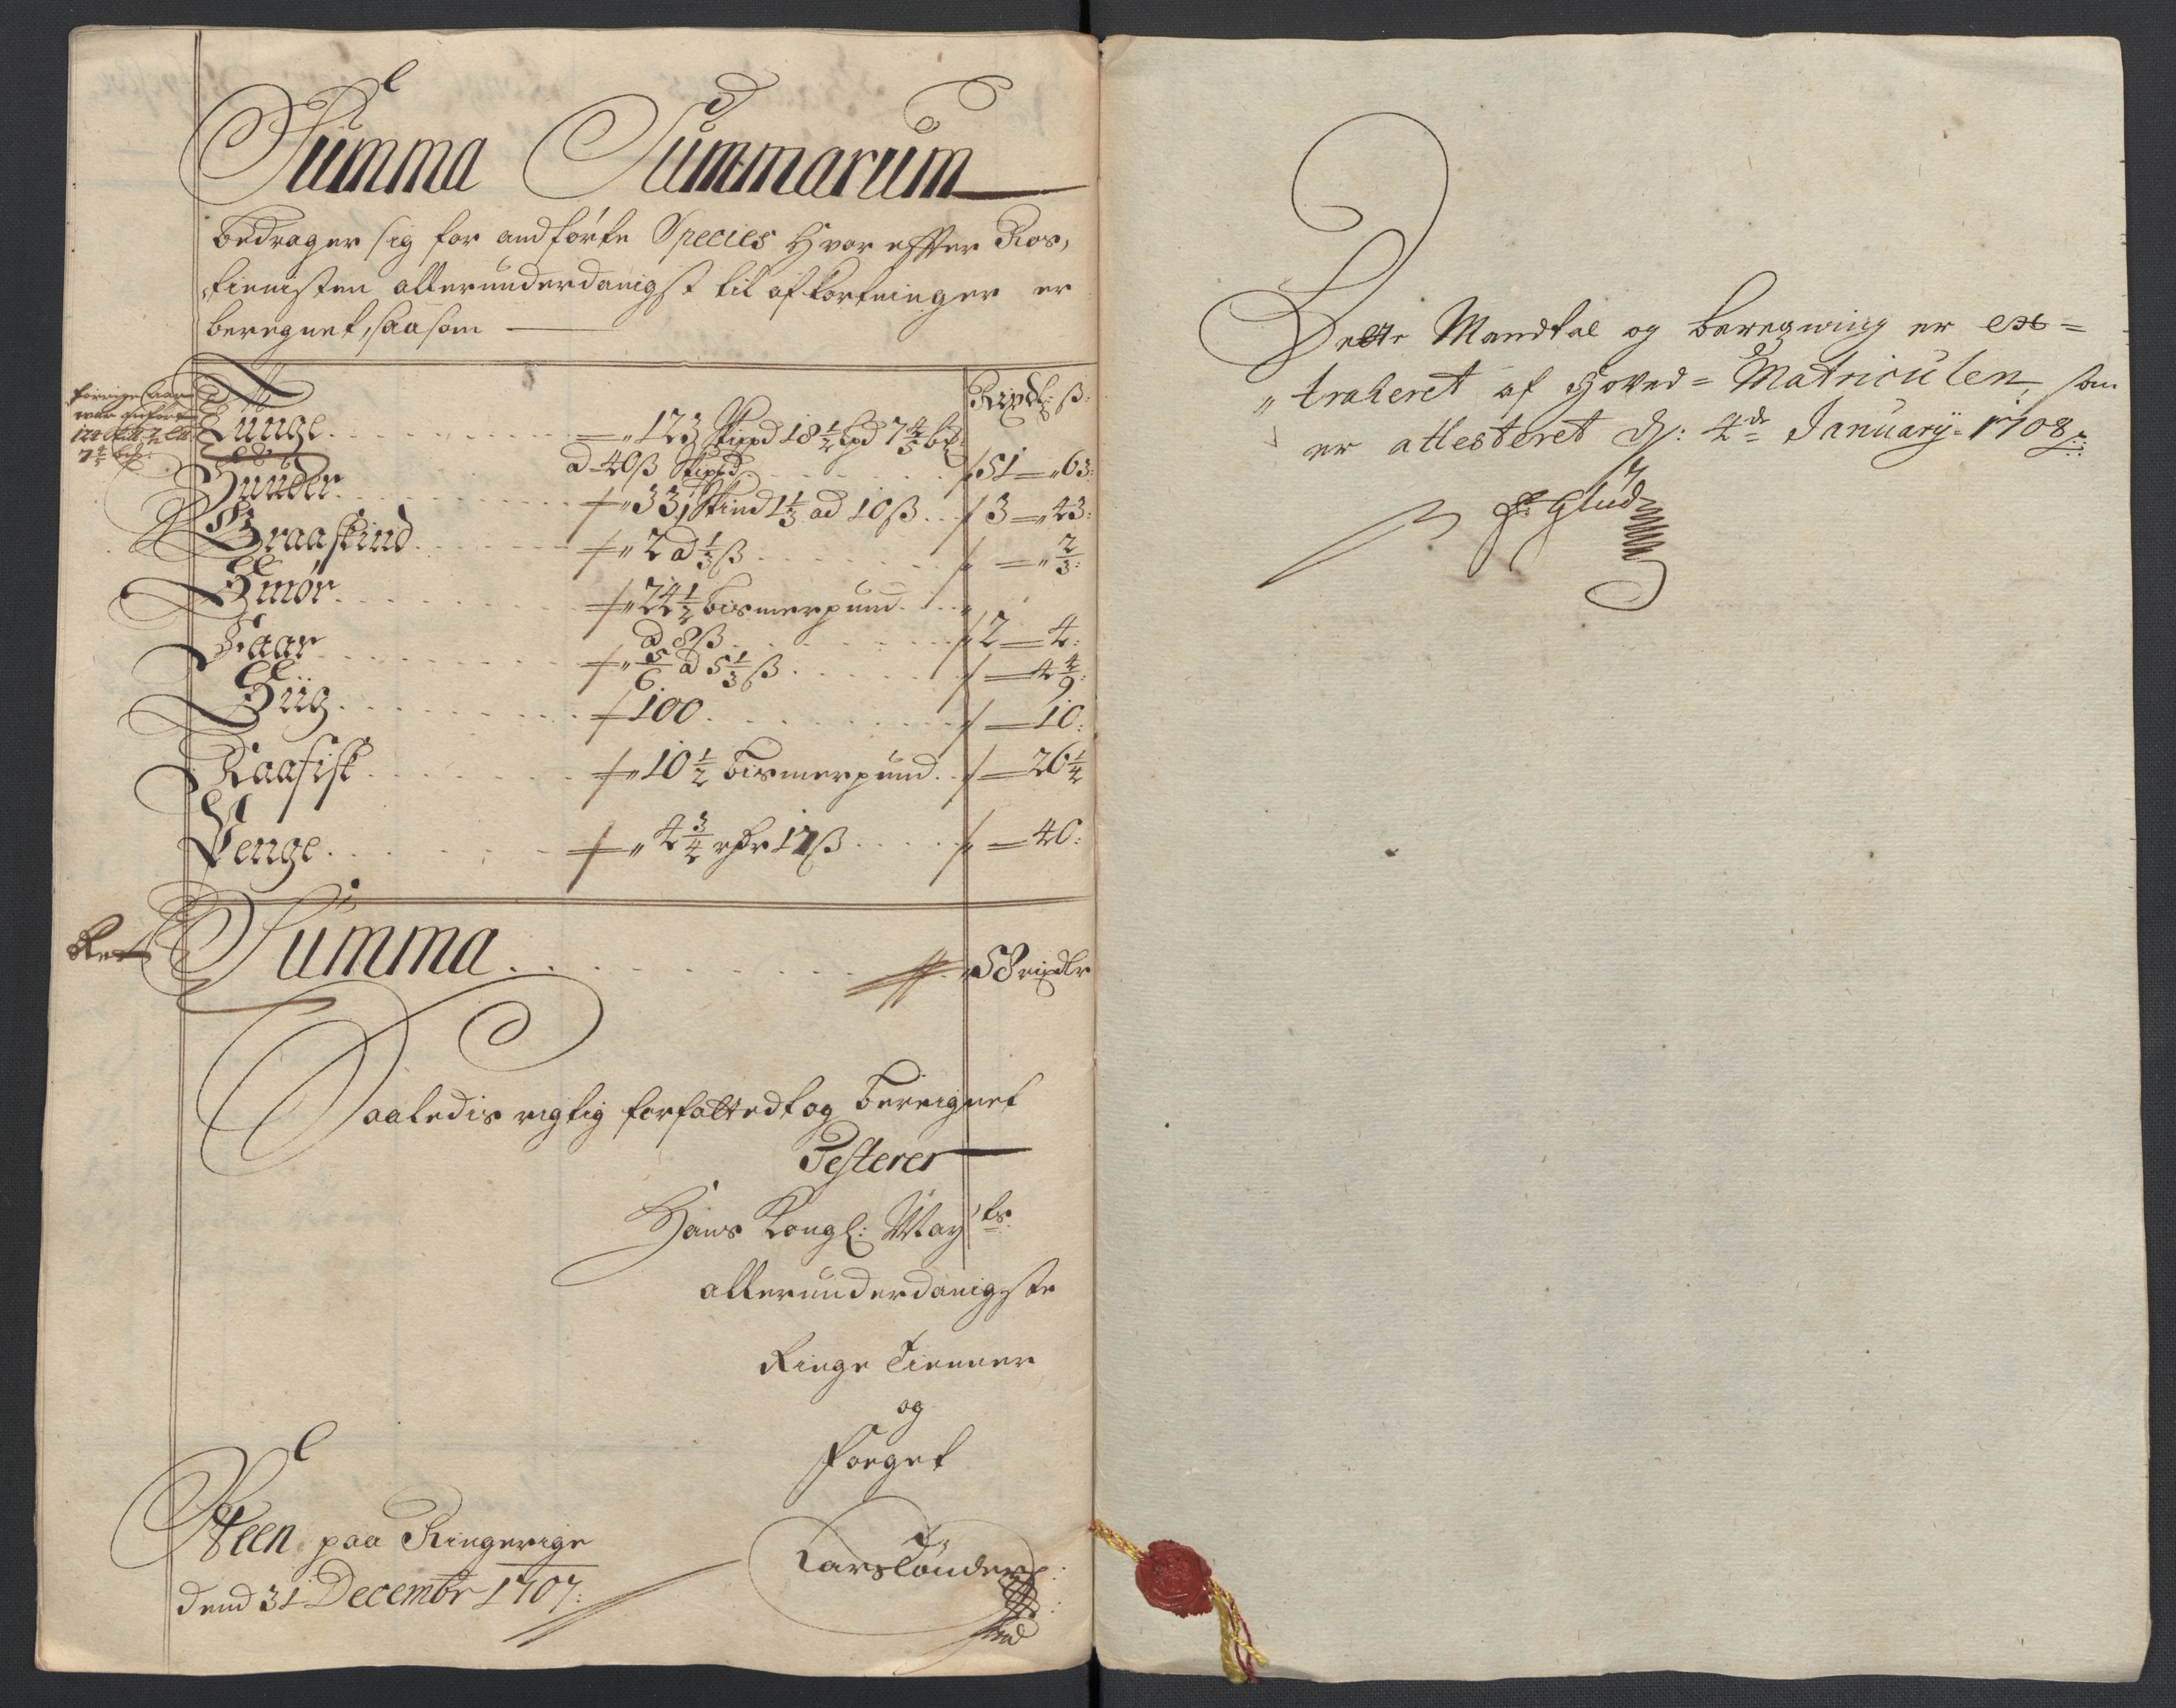 Summa Summarum
bedrager sig for andførte Species Hvor effter Ros,
tienisten allerunderdanigst til afkortninger er
beregnet, saasom
Rixdl: ß:
forrige Aar
war anført
7 4/5 bp:
Tunge 123 Skipd 18 1/2 Lpd 7 4/5 bp:
a 40 ß Skipd 51 63:
Huuder 33, Skind 1 1/3 ad 10 ß 3 43:
Graaskind 2 a 1/3 ß 2/3:
Smør 24 1/2 bismerpund
a 8 ß 2 4:
Faar 5/6 a 5 1/3 ß 4 4/9:
Hüg 100 10:
Raafisk 10 1/2 bismerpund 26 1/4
Penge 4 3/4 rhr 17 ß 40:
Ret
Summa 58 rixdlr
Saaledis rigtig forfattedt og bereignet
Testerer
Hans Kongl: May:ts
allerunderdanigste
Ringe Tienner
og
Foeget
Steen paa Ringerige
dend 31 Decembr 1707:
Lars Tønder
Dette Mandtal og beregning er ex=
traheret af Hoved=Matriculen, som
er attesteret D: 4de January 1708
Glud